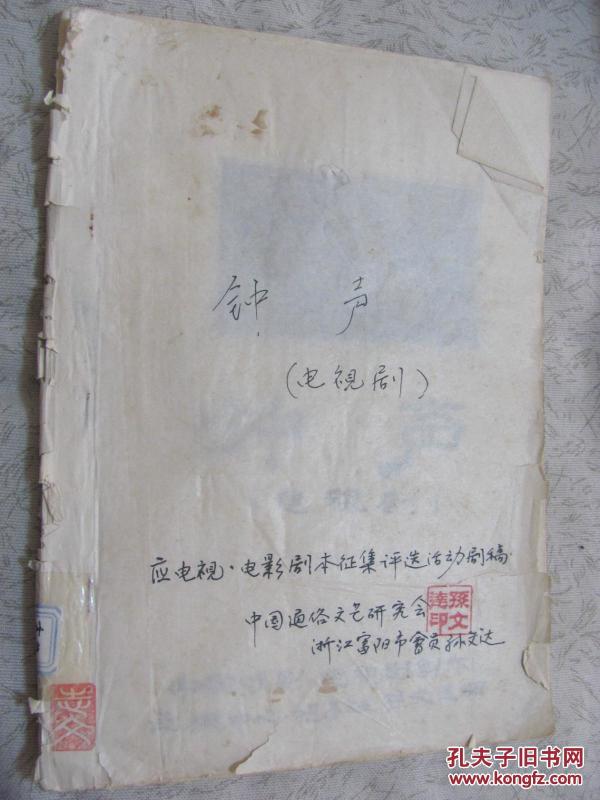 钟 声
(电視剧)
应电視·电影剧本征集评选活动剧稿
中国通俗文艺研究会
浙江富阳市會员孙文达
孫文達印
孔夫子旧书网
www.kongfz.com